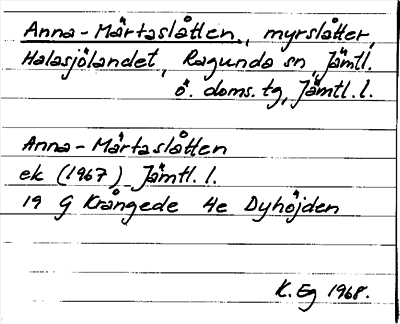 Anna-Märtaslåtten, myrslåtter,
Halasjölandet, Ragunda sn, Jämtl.
ö. doms.tg, Jämtl.l.
Anna-Märtaslåtten
ek (1967) Jämtl.l.
19 G Krångede 4e Dyhöjden
K.Eg 1968.